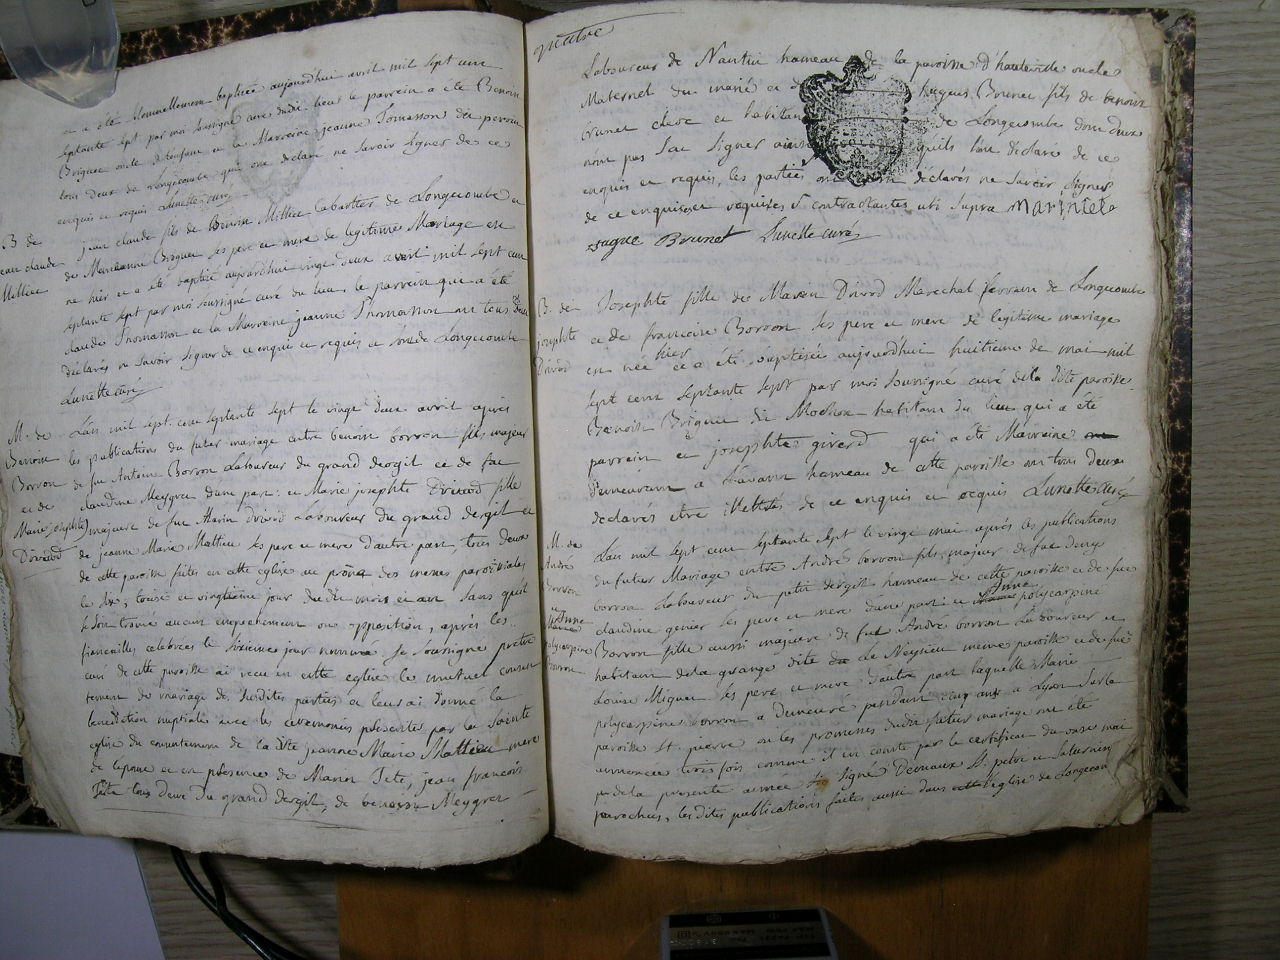 a été nouvellement baptisée aujourdhui avril mil sept cent
septante sept par moi soussigné curé dudit lieu le parrein a été Benoit
Brigue oncle d'enfant et la Marreine jeanne Tomasson de peroux
tous deux de Longecombe qui ont déclaré ne savoir signer de ce
enquis et requis Lunette curé
B de
jean claude
Milliet
jean claude fils de Benoit Milliet labarttier de Longecombe et
de Marianne Briguet ses pere et mere de legitime Mariage est
né hier et a été baptisé aujourd'hui vingt deux avril mil sept cent
septante sept par moi soussigné curé du lieu le parrein qui a été
claude Thomasson et la Marreine jeanne Thomasson ont tous deux
déclarés ne savoir signer de ce enquis et requis de Longecombe
Lunette curé
M. de
Benoit
Borron
et de
Marie josephte
Drivard
L'an mil sept cent septante sept le vingt deux avril après
les publications du futur mariage entre benoit borron fils majeur
de feu Antoine Borron Laboureur du grand dergit et de feu
claudine Meygret d'une part : et Marie josephte Drivard fille
majeure de feu Marin Drivard Laboureur du grand dergit et
de jeanne Marie Mathieu ses pere et mere d'autre part, tous deux
de cette paroisse faites en cette eglise au prône des messes paroissiales
le six, treise et vingtieme jour du dit mois et an sans quil
se soit trouvé aucun empechement ou opposition, après les
fiancailles celebrées le sixieme jour nommé Je soussigné prêtre
curé de cette paroisse ai recu en cette eglise le mutuel consen
tement de mariage de susdites parties et leurs ai donné la
benediction nuptiale avec les ceremonies présentes par la Sainte
eglise du consentement de la dite jeanne Marie Mathieu mere
de lepouse et en présence de Manon Tête, jean francois
Tête tous deux du grand dergit, de benoit Meygret
quatre
Laboureur de Nantui hameau de la paroisse d'hauteville oncle
Maternel du marié et de hugues Brunet fils de benoit
brunet clerc et habitant de Longecombe dont deux
n'ont pas Scu Signer ainsi quils l'ont déclaré de ce
enquis et requis, les parties ont déclarés ne savoir signer
de ce enquises et requises contractantes uti supra MARINTETE
hugue Brunet Lunette curé
B. de
josephte
Drivard
Josephte fille de Marin Drivord Marechal ferrant de Longecombe
et de francoise Borron ses pere et mere de legitime mariage
est née hier et a été baptisée aujourdhui huitieme de mai mil
sept cent septante sept par moi soussigné curé de la dite paroisse
Benoit Brigue di Mochon habitant du lieu qui a été
parrein et josephte girerd qui a été Marreine
demeurant a Lavant hameau de cette paroisse ont tous deux
déclarés etre illettrés de ce enquis et requis Lunette curé
M. de
André
Borron
et
Anne
polycarpine
Borron
L'an mil sept cent septante sept le vingt mai après les publications
du futur Mariage entre André borron fils majeur de feu denys
borron Laboureur du petit dergit hameau de cette paroisse et de feue
claudine genier ses pere et mere d'une part : et Anne polycarpine
Borron fille aussi majeure de feu André borron Laboureur et
habitant de la grange dite de Le Neyrieu meme paroisse et de feue
Louise Miguet ses pere et mere d'autre part laquelle Marie
polycarpine borron a demeuré pendant cinq ans a Lyon sur la
paroisse st. pierre ou les promesses dudit futur mariage ont été
annoncées trois fois comme il en conste par le certificat du onze mai
de la presente année signé Devaux St. petri et Saturnini
parochus, les dites publications faites aussi dans cette Eglise de Longecom